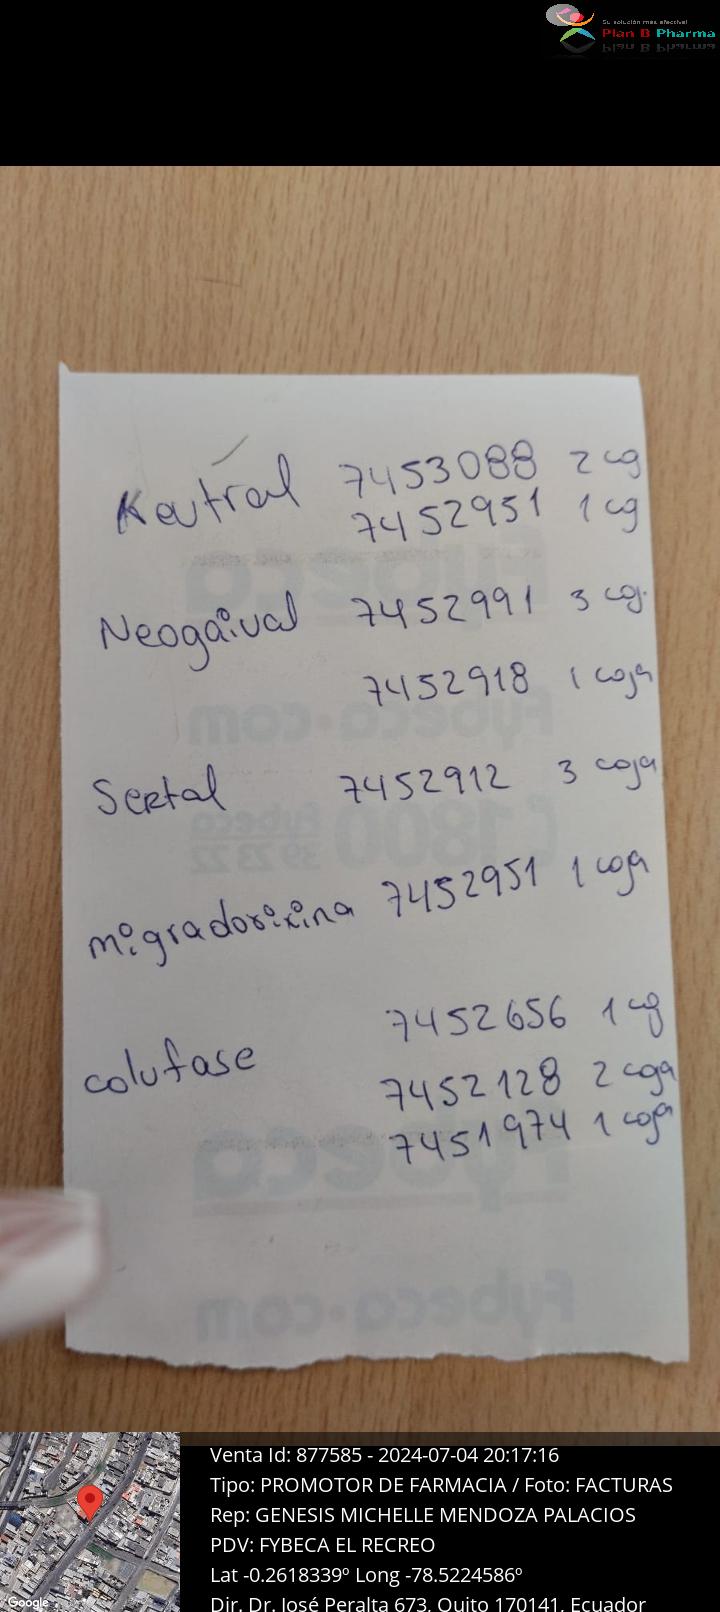 Su solución más efectiva!
Plan B Pharma
Keutral 7453088 2 cg
7452951 1 cg
Neogaival 7452991 3 cg.
7452918 1 caja
Sertal 7452912 3 caja
migradorixina 7452951 1 caja
7452656 1 cg
colufase
7452128 2 caja
7451974 1 caja
Fybeca
Fybeca.com
1800 Fybeca
39 23 22
Fybeca
Fybeca.com
Google
Venta Id: 877585 - 2024-07-04 20:17:16
Tipo: PROMOTOR DE FARMACIA / Foto: FACTURAS
Rep: GENESIS MICHELLE MENDOZA PALACIOS
PDV: FYBECA EL RECREO
Lat -0.2618339º Long -78.5224586º
Dir. Dr. José Peralta 673, Quito 170141, Ecuador